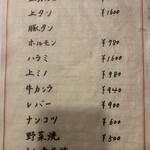 上タン ¥1600
豚タン
ホルモン ¥780
ハラミ ¥1600
上ミノ ¥980
牛カシラ ¥940
レバー ¥900
ナンコツ ¥600
野菜焼 ¥500